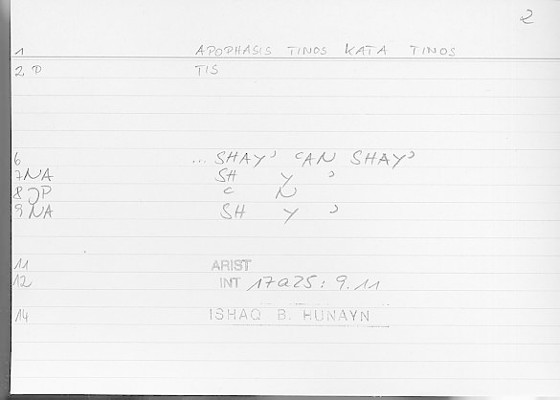 2
1 APOPHASIS TINOS KATA TINOS
2 D TIS
6 ... SHAYʾ ʿAN SHAYʾ
7 NA SH Y ʾ
8 JP ʿ N
9 NA SH Y ʾ
11 ARIST
12 INT 17a25 : 9.11
14 ISHAQ B. HUNAYN